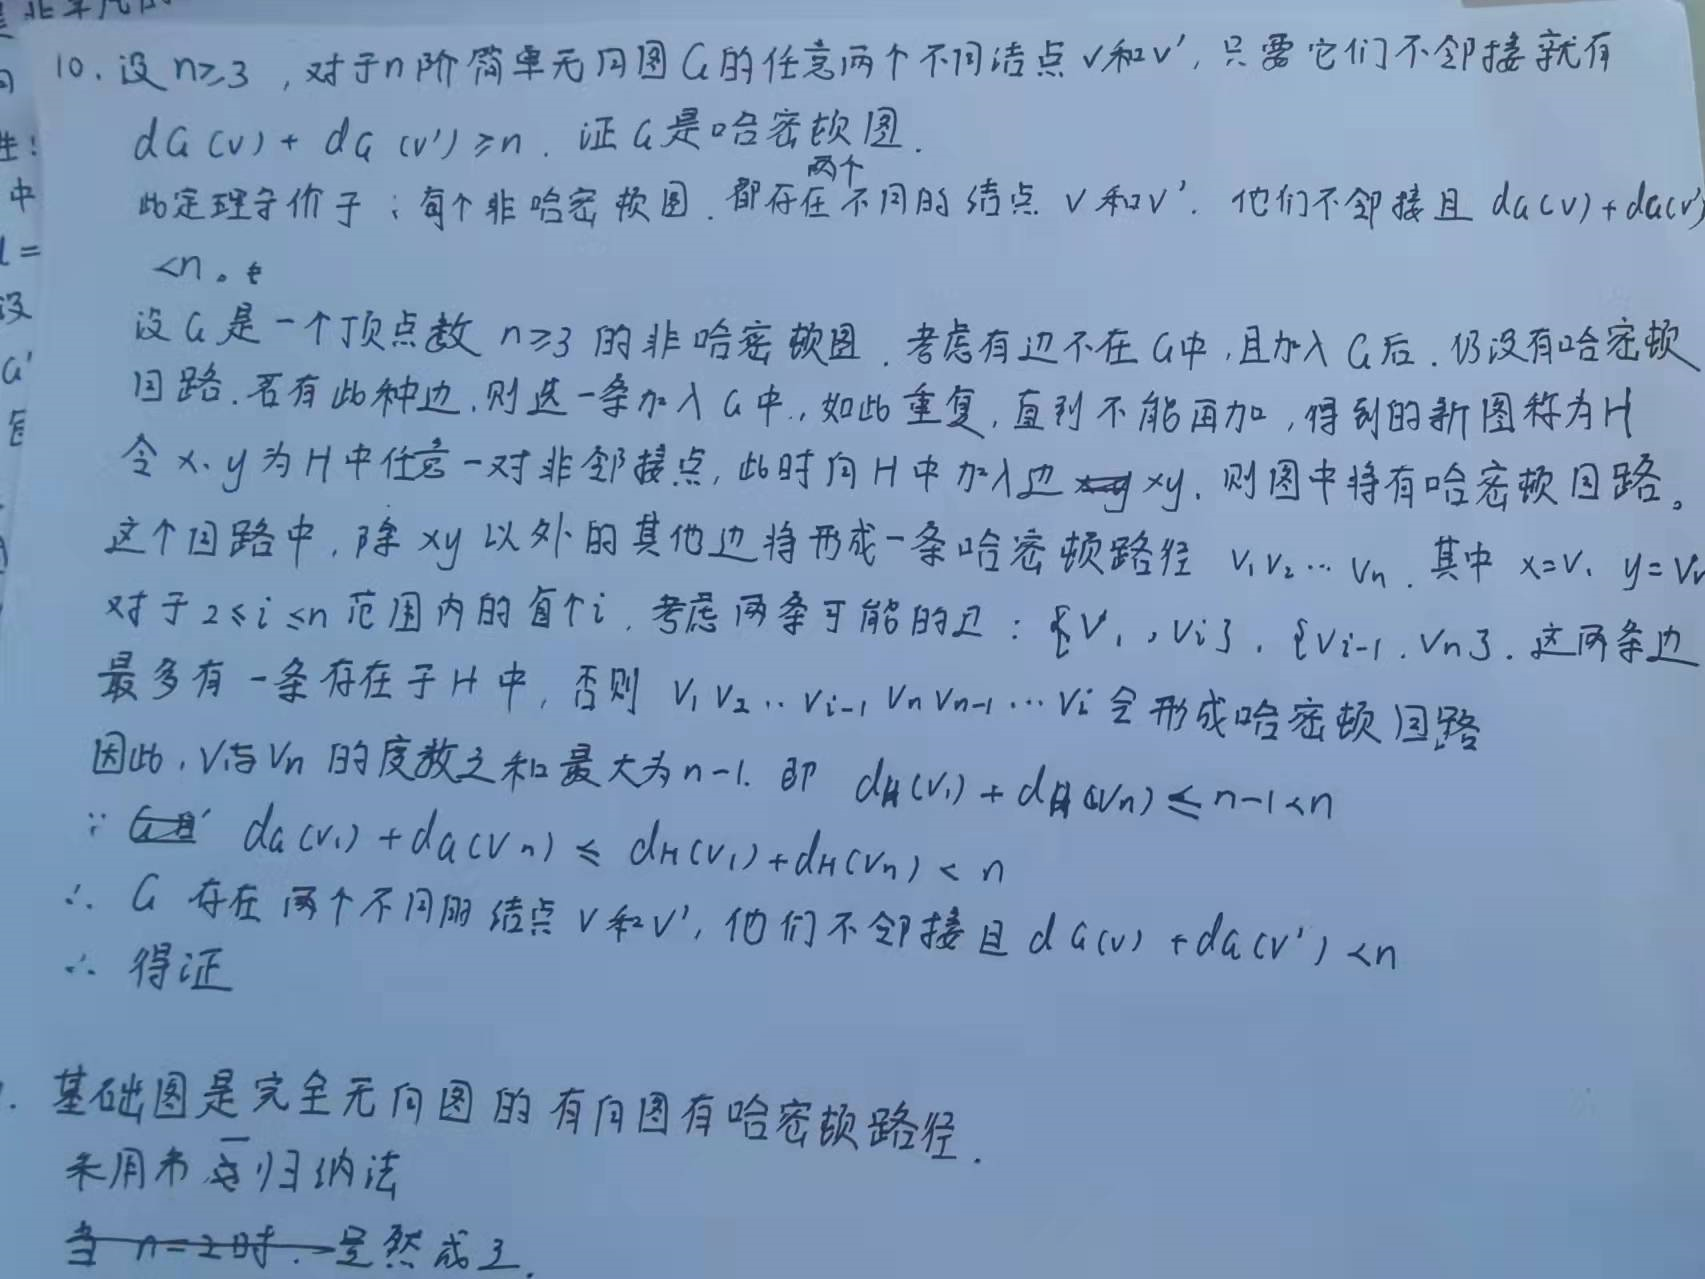 是非平凡的
10. 设 n≥3，对于n阶简单无向图G的任意两个不同结点 v和v'，只要它们不邻接就有
dG(v) + dG(v') ≥n. 证G是哈密顿图.
此定理等价于：每个非哈密顿图，都存在两个不同的结点 v和v'. 他们不邻接且 dG(v)+dG(v')
<n。
设G是一个顶点数 n≥3 的非哈密顿图. 考虑有边不在G中，且加入G后，仍没有哈密顿
回路. 若有此种边，则选一条加入G中，如此重复，直到不能再加，得到的新图称为H
令 x、y为H中任意一对非邻接点，此时向H中加入边 xy，则图中将有哈密顿回路。
这个回路中，除xy以外的其他边将形成一条哈密顿路径 v1v2…vn. 其中 x=v1 y=vn
对于2≤i≤n范围内的每个i，考虑两条可能的边：{v1,vi}，{vi-1，vn}. 这两条边
最多有一条存在于H中，否则 v1v2‥vi-1vnvn-1…vi会形成哈密顿回路
因此，v1与vn的度数之和最大为n-1. 即 dH(v1)+dH(vn)≤n-1<n
∵ dG(v1)+dG(vn)≤dH(v1)+dH(vn)<n
∴ G 存在两个不同的结点v和v'，他们不邻接且dG(v)+dG(v')<n
∴ 得证
基础图是完全无向图的有向图有哈密顿路径.
采用第一归纳法
当 n=2时. 显然成立.
生:
中
设
G'